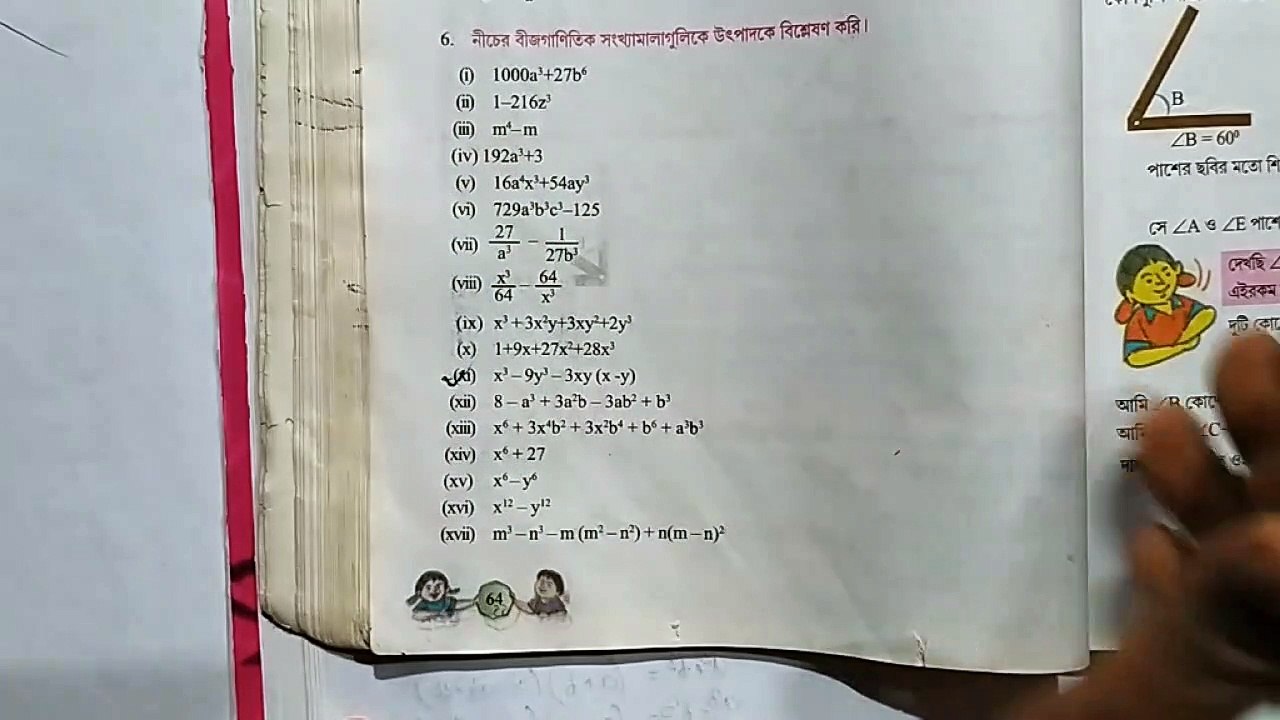 6. নীচের বীজগাণিতিক সংখ্যামালাগুলিকে উৎপাদকে বিশ্লেষণ করি।
(i) 1000a³+27b⁶
(ii) 1–216z³
(iii) m⁴–m
(iv) 192a³+3
(v) 16a⁴x³+54ay³
(vi) 729a³b³c³–125
(vii) 27/a³ – 1/27b³
(viii) x³/64 – 64/x³
(ix) x³+3x²y+3xy²+2y³
(x) 1+9x+27x²+28x³
(xi) x³–9y³–3xy (x -y)
(xii) 8 – a³ + 3a²b – 3ab² + b³
(xiii) x⁶ + 3x⁴b² + 3x²b⁴ + b⁶ + a³b³
(xiv) x⁶ + 27
(xv) x⁶–y⁶
(xvi) x¹² – y¹²
(xvii) m³ – n³ – m (m² – n²) + n(m – n)²
64
B
∠B = 60⁰
পাশের ছবির মতো
সে ∠A ও ∠E পাশে
দেখছি
এইরকম
দুটি
আমি ∠B